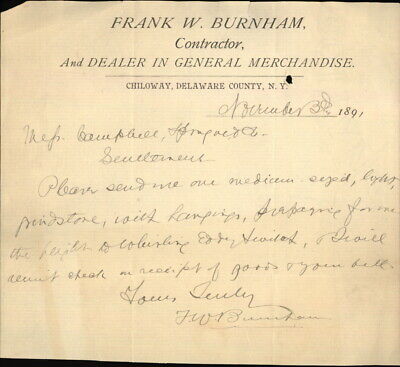 FRANK W. BURNHAM,
Contractor,
AND DEALER IN GENERAL MERCHANDISE.
CHILOWAY, DELAWARE COUNTY, N. Y.
November 3d 1891
Mess Campbell,
Gentlemen
Please send me one medium sized,
grindstone, with hangings, for me
the freight to Whirling Eddy Switch, & I will
remit check on receipt of goods & your bill.
Yours Truly
F W Burnham